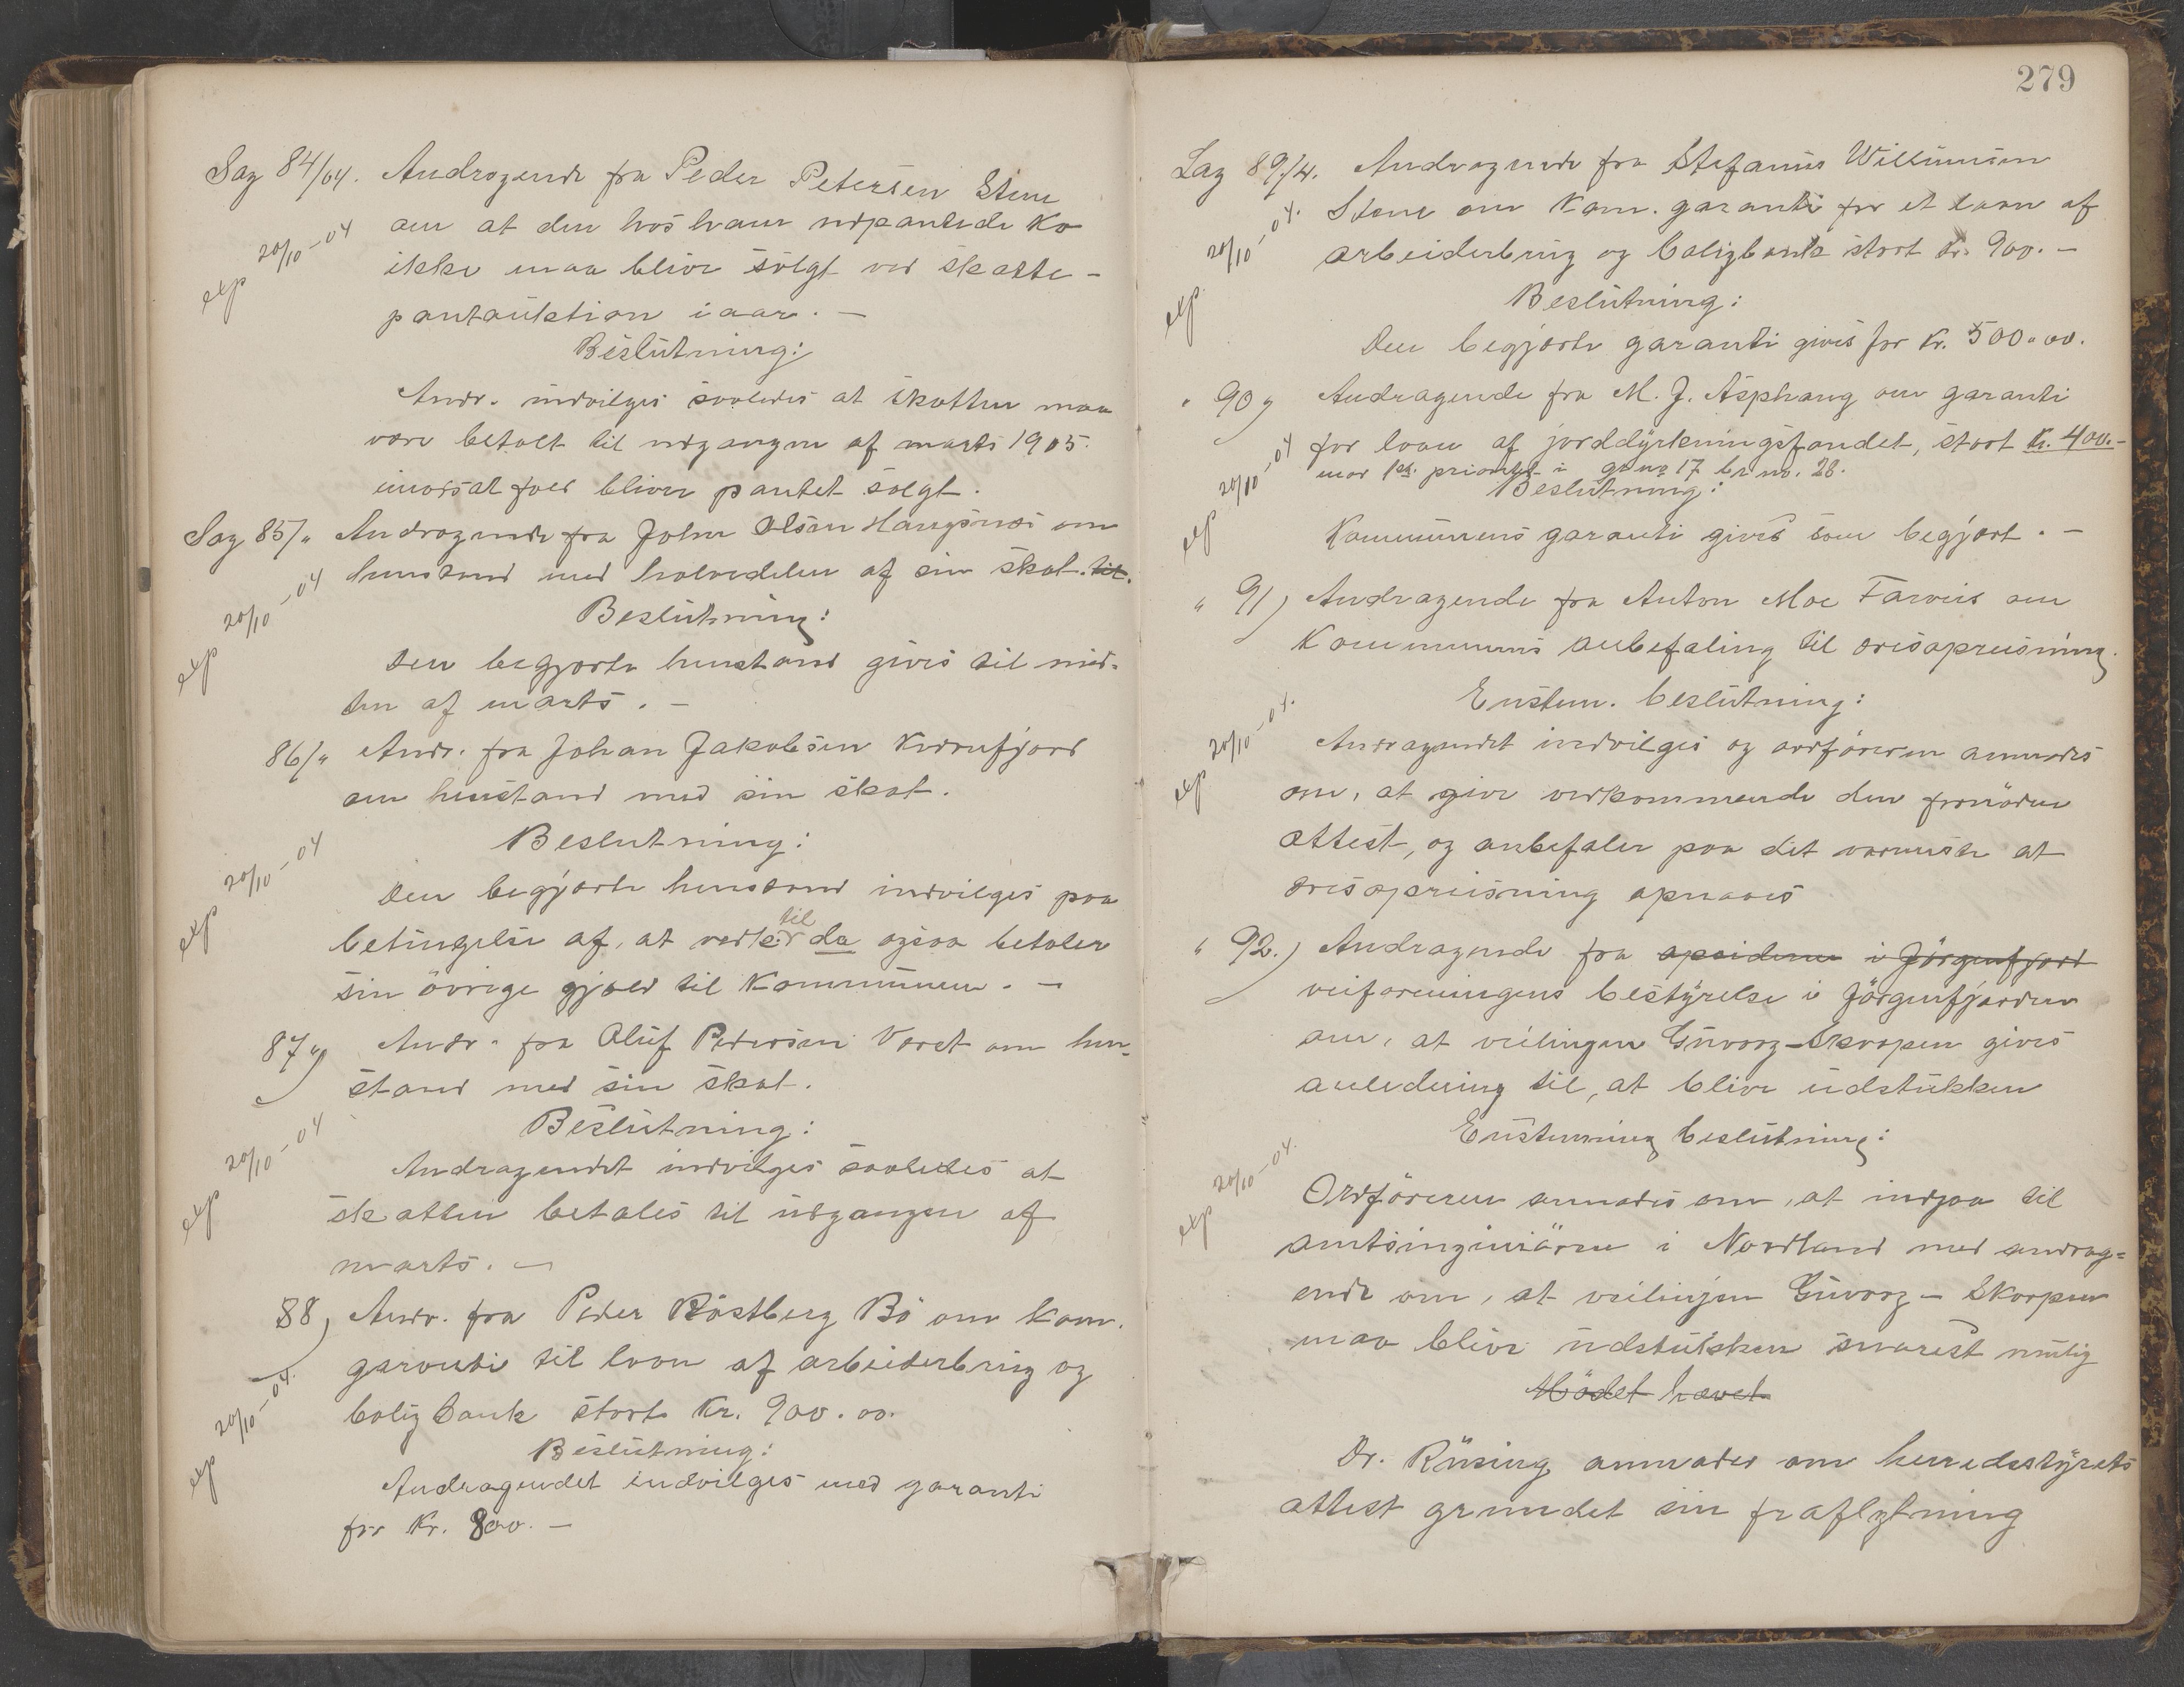 Sag 84/04. Andragende fra Peder Petersen Stene
exp 20/10-04
om at den hos ham udpantede ko
ikke maa blive solgt ved skatte-
pantauktion iaar. —
Beslutning:
Andr. indvilges saaledes at skatten maa
være betalt til udgangen af marts 1905.
imodsat fald bliver pantet solgt.
Sag 85/" Andragende fra Johan Olsen Haugsnes om
exp 20/10-04
henstand med halvdelen af sin skat. til.
Beslutning:
Den begjærte henstand gives til mid-
ten af marts. —
86/" Andr. fra Johan Jakobsen
om henstand med sin skat.
exp 20/10-04
Beslutning:
Den begjærte henstand indvilges paa
til
betingelse af, at da ogsaa betaler
sin övrige gjæld til Kommunen. —
87") Andr. fra Oluf Petersen Varet om hen-
stand med sin skat.
exp 20/10-04
Beslutning:
Andragendet indvilges saaledes at
skatten betales til udgangen af
marts. —
88) Andr. fra Peder Röstberg Bö om kom.
garanti til laan af arbeiderbrug og
exp 20/10-04.
boligbank stort Kr. 900.00.
Beslutning:
Andragendet indvilges med garanti
for Kr. 800. —
279
Sag 89/4. Andragende fra Stefanus Willumsen
exp. 20/10-04.
Stene om Kom. garanti for et laan af
arbeiderbrug og boligbank stort kr. 900. —
Beslutning:
Den begjærte garanti gives for Kr. 500.00.
" 90) Andragende fra M. J. Asphaug om garanti
exp 20/10-04
for laan af jorddyrkningsfondet, stort Kr. 400.-
mod 1ste prioritet i gr no 17 br no. 28.
Beslutning:
Kommunens garanti gives som begjært. —
" 91) Andragende fra Anton Moe om
Kommunens anbefaling til oreisningspræmie
Enstem. beslutning:
exp 20/10-04.
Andragendet indvilges og ordföreren anmodes
om, at give vedkommende den fornödne
attest, og anbefaler paa det varmeste at
opnaaes
" 92.) Andragende fra opsidderne i Jörgenfjord
veiforeningens bestyrelse i Jörgenfjorden
om, at veilinjen – Skorpen gives
anledning til, at blive udstukken
Enstemmig beslutning:
exp 20/10-04.
Ordföreren anmodes om, at indgaa til
amtsingeniören i Nordland med andrag=
ende om, at veilinjen – Skorpen
maa blive udstukken snarest mulig
Mödet hævet
Dr. Rüsing anmoder om herredsstyrets
attest grundet sin fraflytning